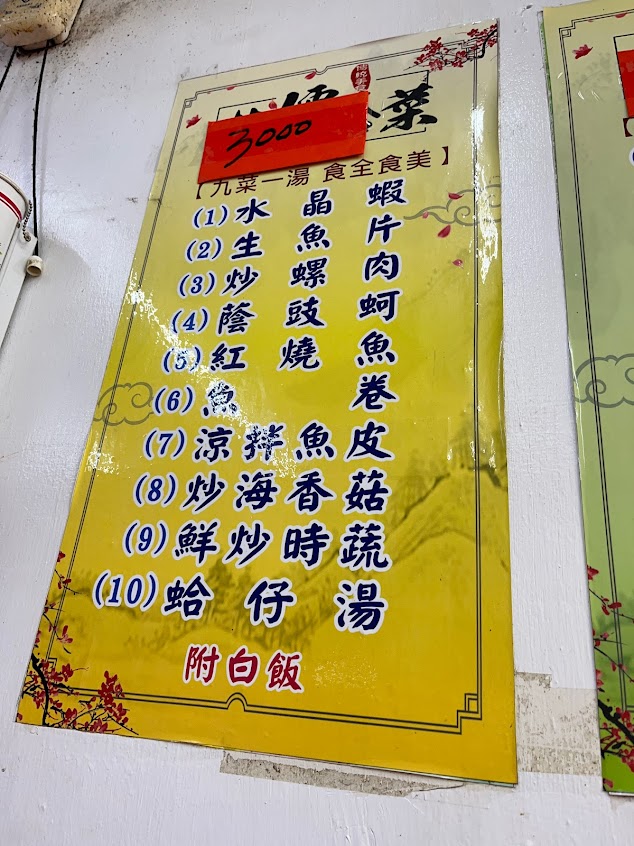 傳統美食
菜
3000
【九菜一湯 食全食美】
(1)水晶蝦
(2)生魚片
(3)炒螺肉
(4)蔭豉蚵
(5)紅燒魚
(6)魚卷
(7)涼拌魚皮
(8)炒海香菇
(9)鮮炒時蔬
(10)蛤仔湯
附白飯